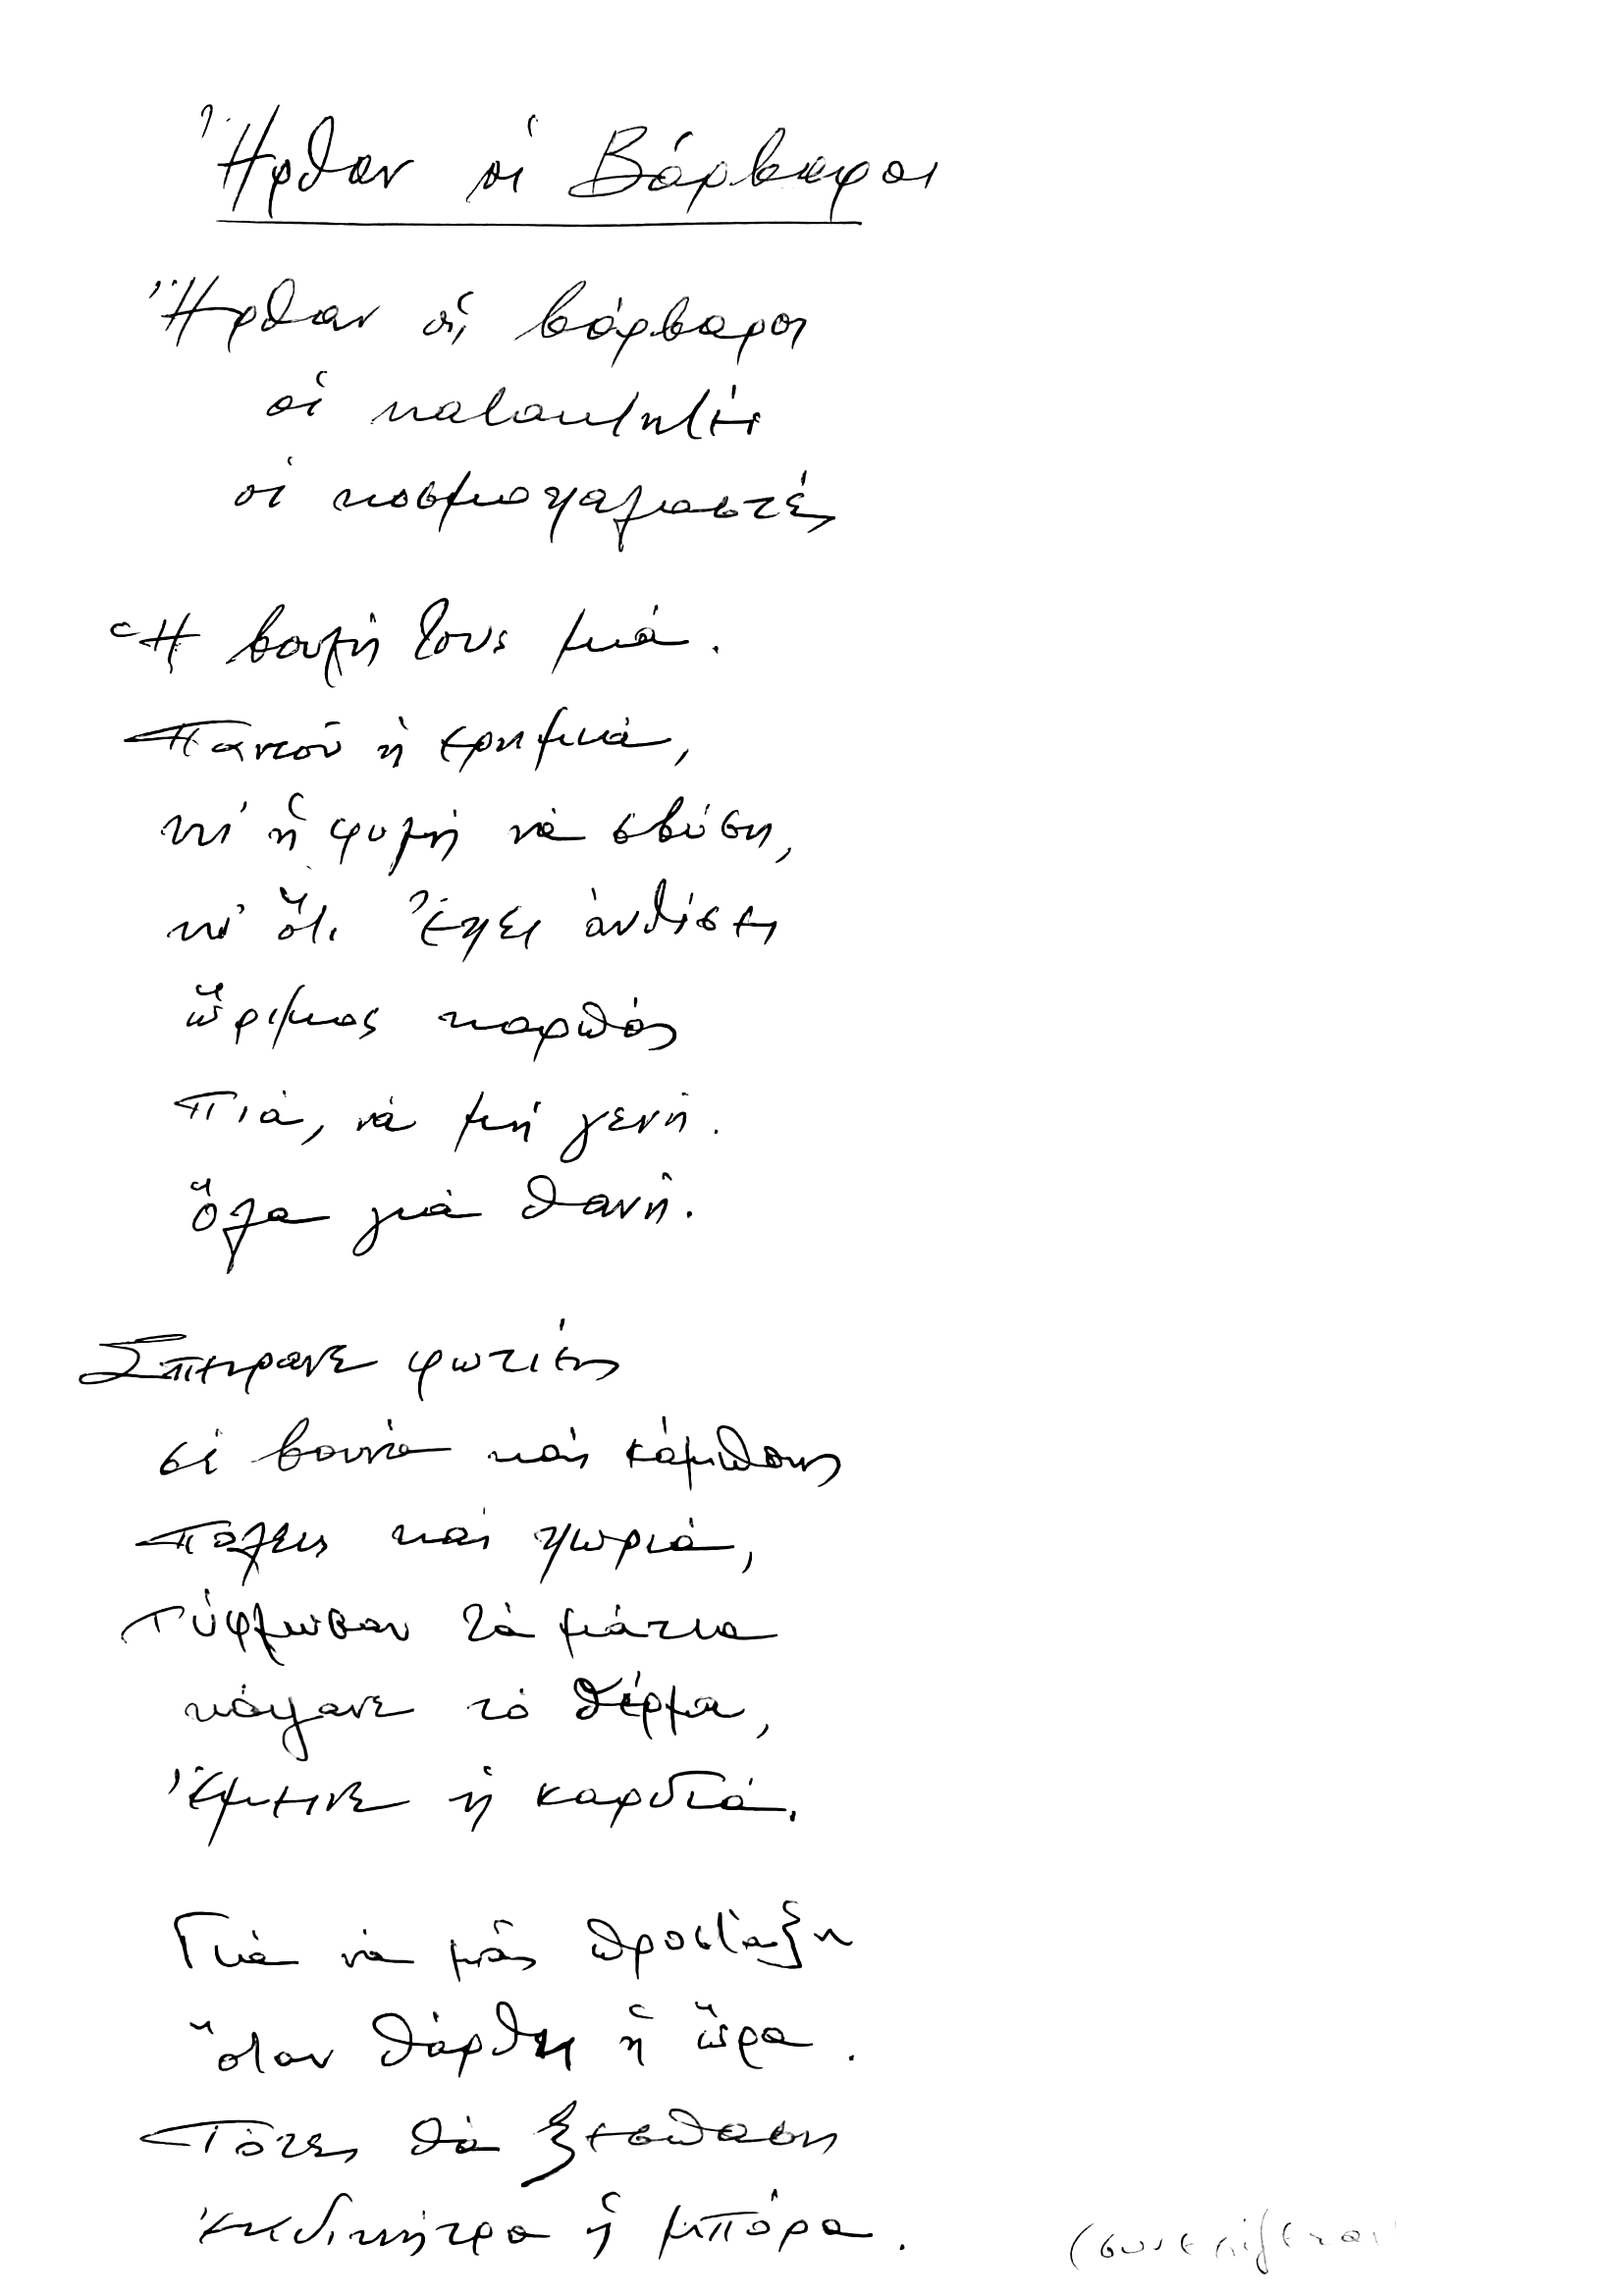 Ἦρθαν οἱ Βάρβαροι
Ἦρθαν οἱ βάρβαροι
οἱ καταυλητές
οἱ κοσμοχαλαστές
Ἡ βουλή τους μιά.
Παντοῦ ἡ ἐρημιά,
κι' ἡ φυλή νά σβύση,
κι' ὅτι ἔχει ἀνθίσει
ὥριμος καρπός
πιά, νά μή γενῆ.
ὅλα γιά θανῆ.
Σπείρανε φωτιές
σέ βουνά καί κάμπους
πόλεις καί χωριά,
τύφλωσαν τά μάτια
κάψανε τό θέρμα,
ἔμεινε ἡ καρδιά.
Γιά νά μᾶς προστάξη
ὅταν θἄρθη ἡ ὥρα.
Τότε, θά ξεσπάση
ἐκδικήτρα ἡ μπόρα.
(συνεχίζεται